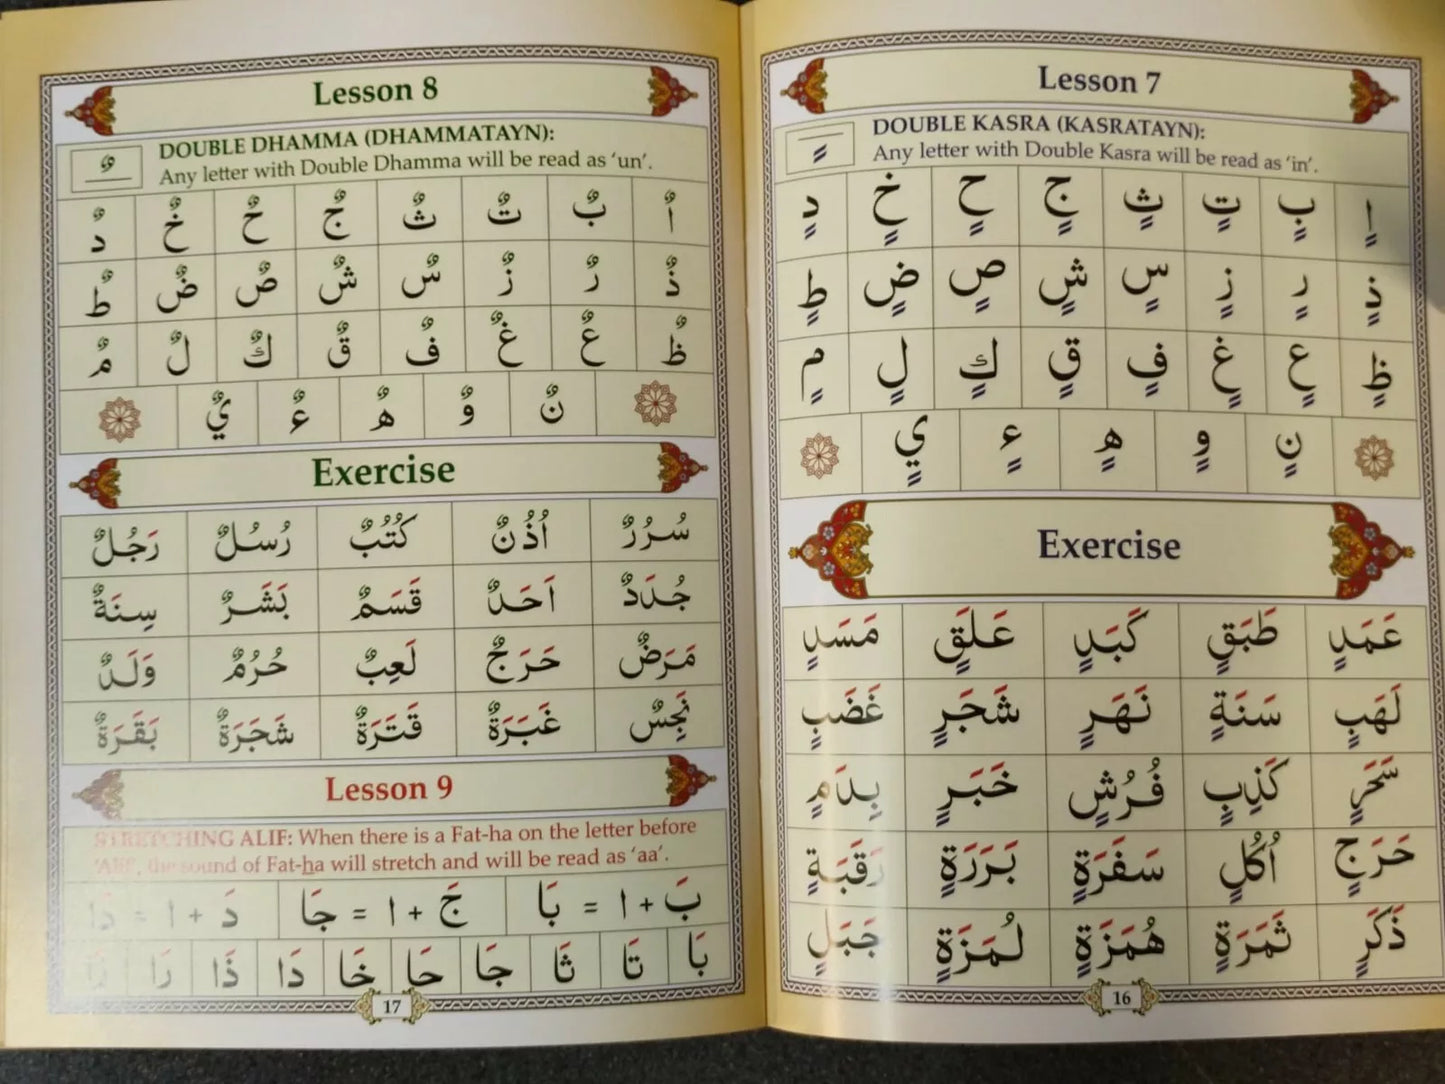 Lesson 7
DOUBLE KASRA (KASRATAYN):
Any letter with Double Kasra will be read as ‘in’.
اٍ بٍ تٍ ثٍ جٍ حٍ خٍ دٍ
ذٍ رٍ زٍ سٍ شٍ صٍ ضٍ طٍ
ظٍ عٍ غٍ فٍ قٍ كٍ لٍ مٍ
نٍ وٍ هٍ ءٍ يٍ
Exercise
عَمَدٍ طَبَقٍ كَبَدٍ عَلَقٍ مَسَدٍ
لَهَبٍ سَنَةٍ نَهَرٍ شَجَرٍ غَضَبٍ
سَحَرٍ كَذِبٍ فُرُشٍ خَبَرٍ بِدَمٍ
حَرَجٍ اُكُلٍ سَفَرَةٍ بَرَرَةٍ رَقَبَةٍ
ذَكَرٍ ثَمَرَةٍ هُمَزَةٍ لُمَزَةٍ جَبَلٍ
16
Lesson 8
DOUBLE DHAMMA (DHAMMATAYN):
Any letter with Double Dhamma will be read as ‘un’.
اٌ بٌ تٌ ثٌ جٌ حٌ خٌ دٌ
ذٌ رٌ زٌ سٌ شٌ صٌ ضٌ طٌ
ظٌ عٌ غٌ فٌ قٌ كٌ لٌ مٌ
نٌ وٌ هٌ ءٌ يٌ
Exercise
سُرُرٌ اُذُنٌ كُتُبٌ رُسُلٌ رَجُلٌ
جُدَدٌ اَحَدٌ قَسَمٌ بَشَرٌ سِنَةٌ
مَرَضٌ حَرَجٌ لَعِبٌ حُرُمٌ وَلَدٌ
نَجِسٌ غَبَرَةٌ قَتَرَةٌ شَجَرَةٌ بَقَرَةٌ
Lesson 9
STRETCHING ALIF: When there is a Fat-ha on the letter before
‘Alif’, the sound of Fat-ha will stretch and will be read as ‘aa’.
بَ + ا = بَا جَ + ا = جَا دَ + ا = دَا
بَا تَا ثَا جَا حَا خَا دَا ذَا رَا زَا
17